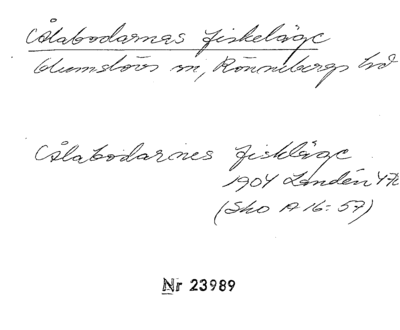 Ålabodarnas fiskeläge
Glumslövs sn, Rönnebergs hd
Ålabodarnes fiskläge
1904 Lindén
(Sko A 16: 57)
Nr 23989